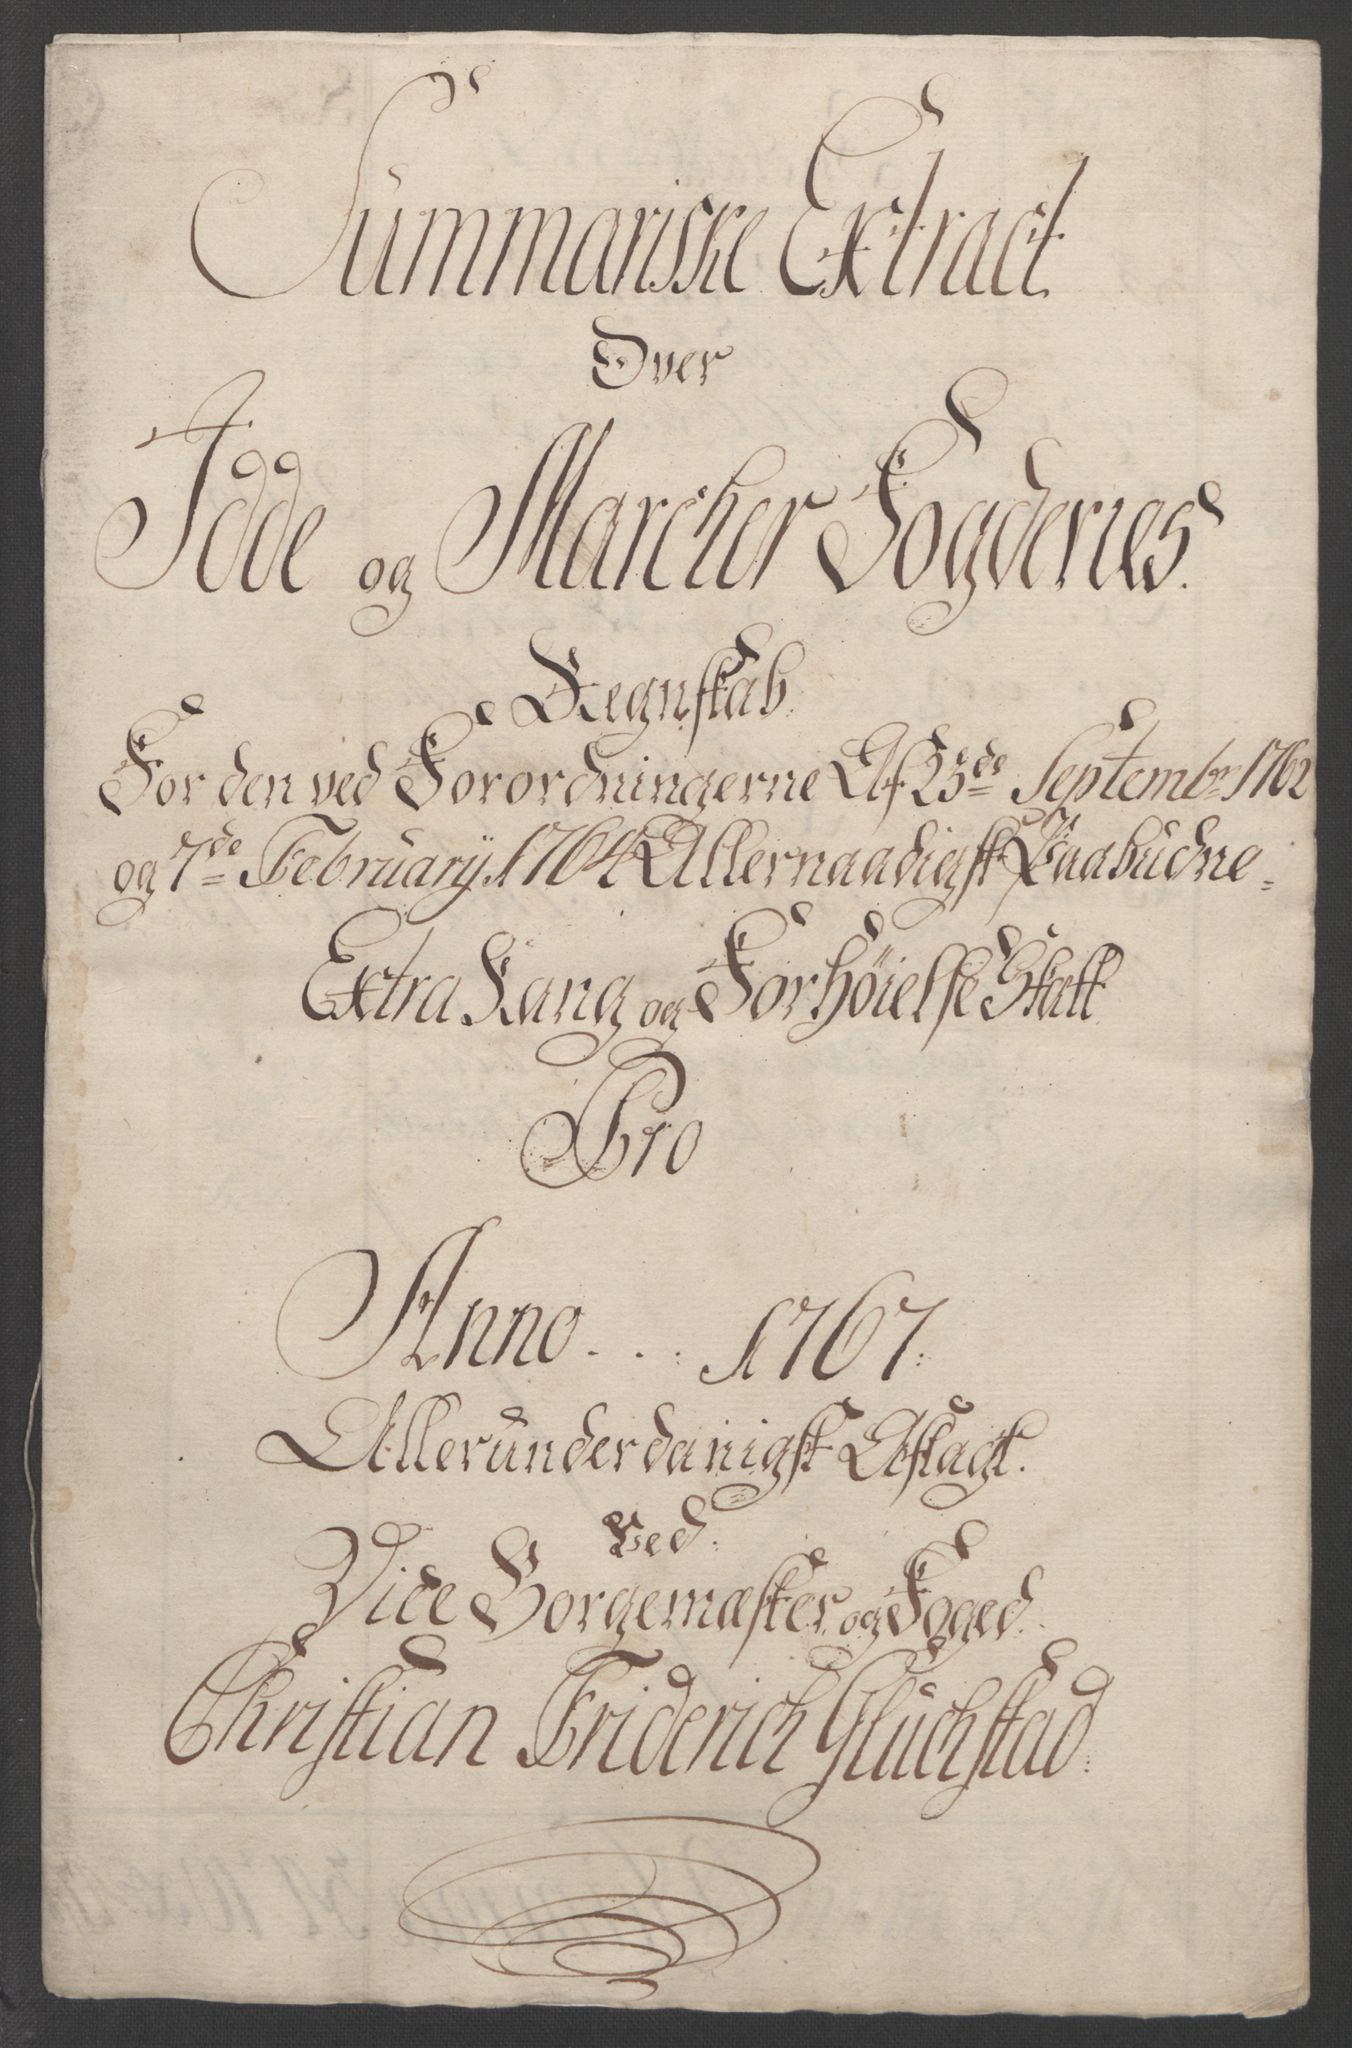 Summariske Extract
Over
Idde og Marcker Fogderies
Regnskab
For den ved Forordningerne Af 23de Septembr 1762
og 7de February 1764 Allernaadigst Paabudne
Extra Rang og Forhøielse Skatt
Pro
Anno . . . 1767.
Allerunderdanigst Aflagt.
Ved.
Vice Borgemæster og Foged.
Christian Friderich Gluchstad.